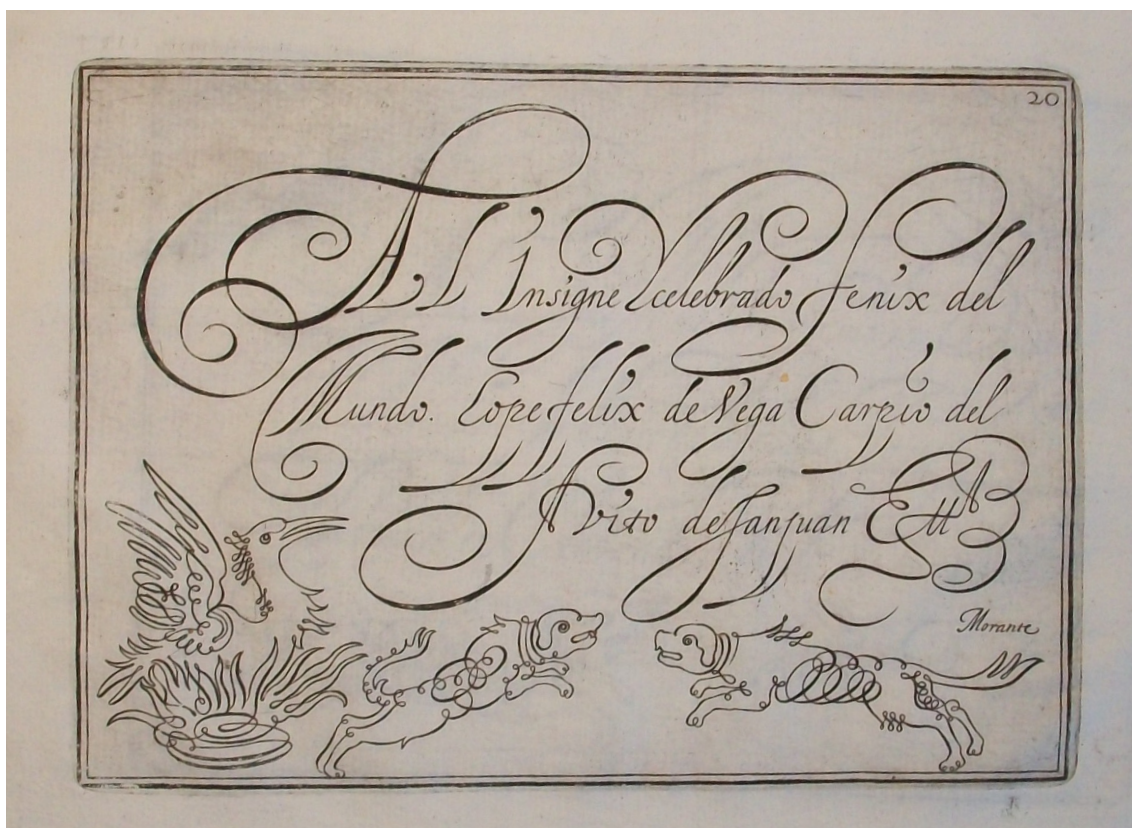 20
Al Insigne Y celebrado fenix del
Mundo. Lope felix de Vega Carpio del
Avito de San Juan Ett
Morante